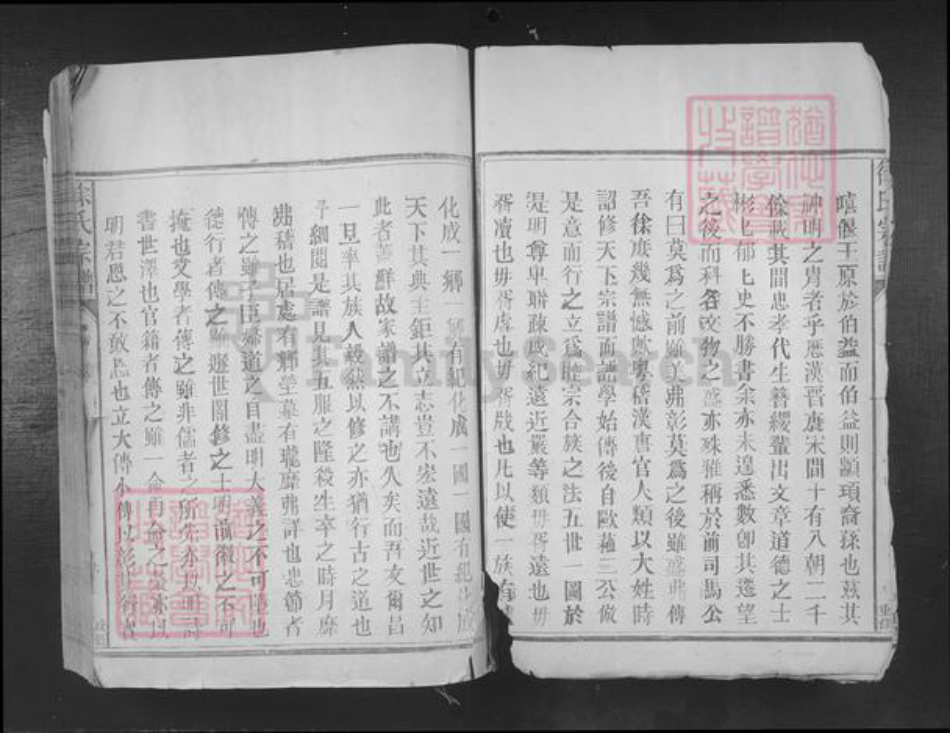 徐氏宗譜
嘻偃王原於伯益而伯益則顓頊裔孫也茲其
神明之胄者乎歷漢晉唐宋間十有八朝二千
餘載其間忠孝代生簪纓輩出文章道德之士
彬七郁七史不勝書余亦未遑悉數卽其遷望
之後而科名文物之盛亦殊雅稱於前司馬公
有曰莫爲之前雖美弗彰莫爲之後雖盛弗傳
吾徐庶幾無憾歟粵稽漢書官人類以大姓時
詔修天下宗譜而譜學始傳後自歐蘓三公倣
是意而行之立爲睦宗合族之法五世一圖於
是明尊卑聯疎戚紀遠近嚴等類毋胥遠也
胥瀆也毋胥虐也毋胥戕也凡以使一族有
化成一鄉一鄉有紀化成一國一國有紀化成
天下其典至鉅其立志豈不宏遠哉近世之知
此者蓋鮮故家譜之不講也久矣而吾友爾昌
一旦率其族人毅然以修之亦猶行古之道也
予細閱是譜見其五服之隆殺生卒之時月靡
弗稽也居處有鄉塋墓有瓏靡弗詳也忠節者
傳之雖子臣婦道之自盡明大義之不可隳也
德行者傳之雖遯世闇修之士明前徽之不可
掩也文學者傳之雖非儒者之所先亦以明詩
書世澤也官籍者傳之雖一命再命之榮亦以
明君恩之不敢忘也立大傳小傳以彰世行者
徐氏宗譜
FamilySearch